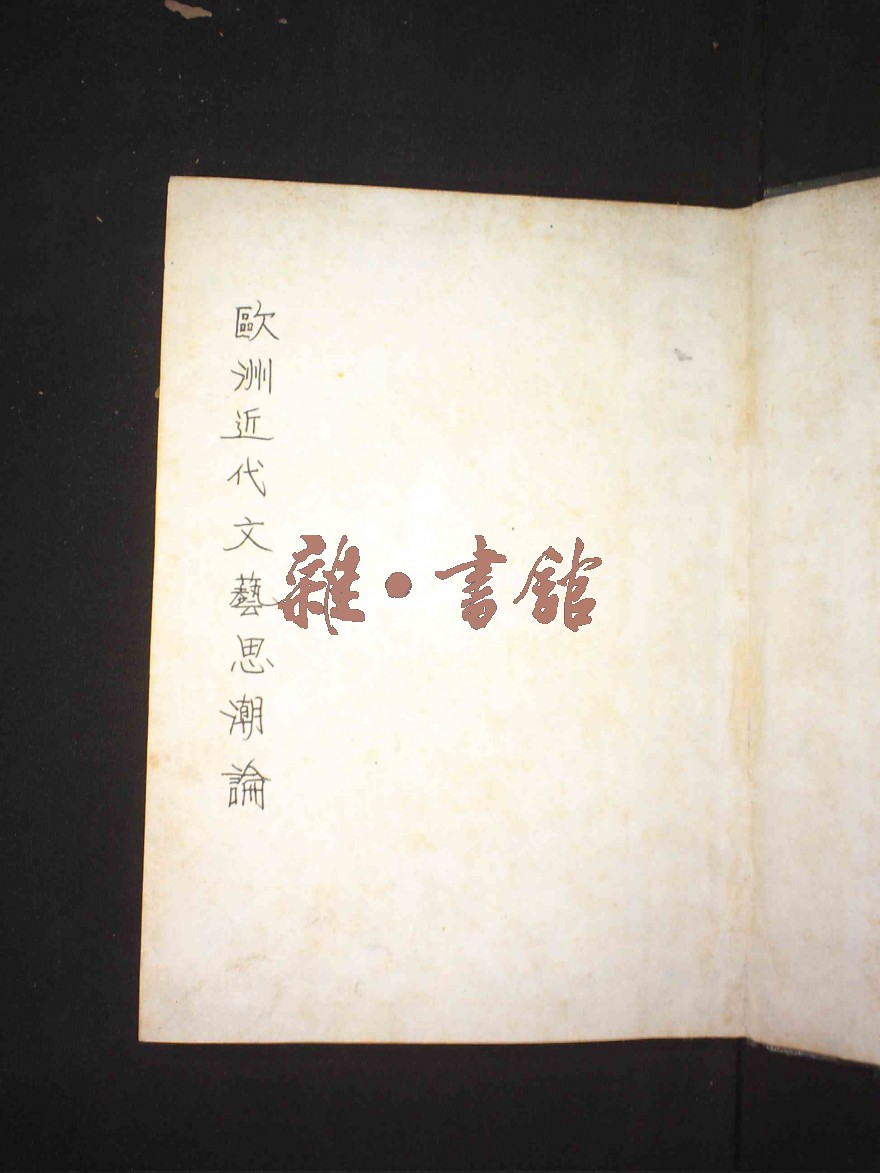 歐洲近代文藝思潮論
雜·書館